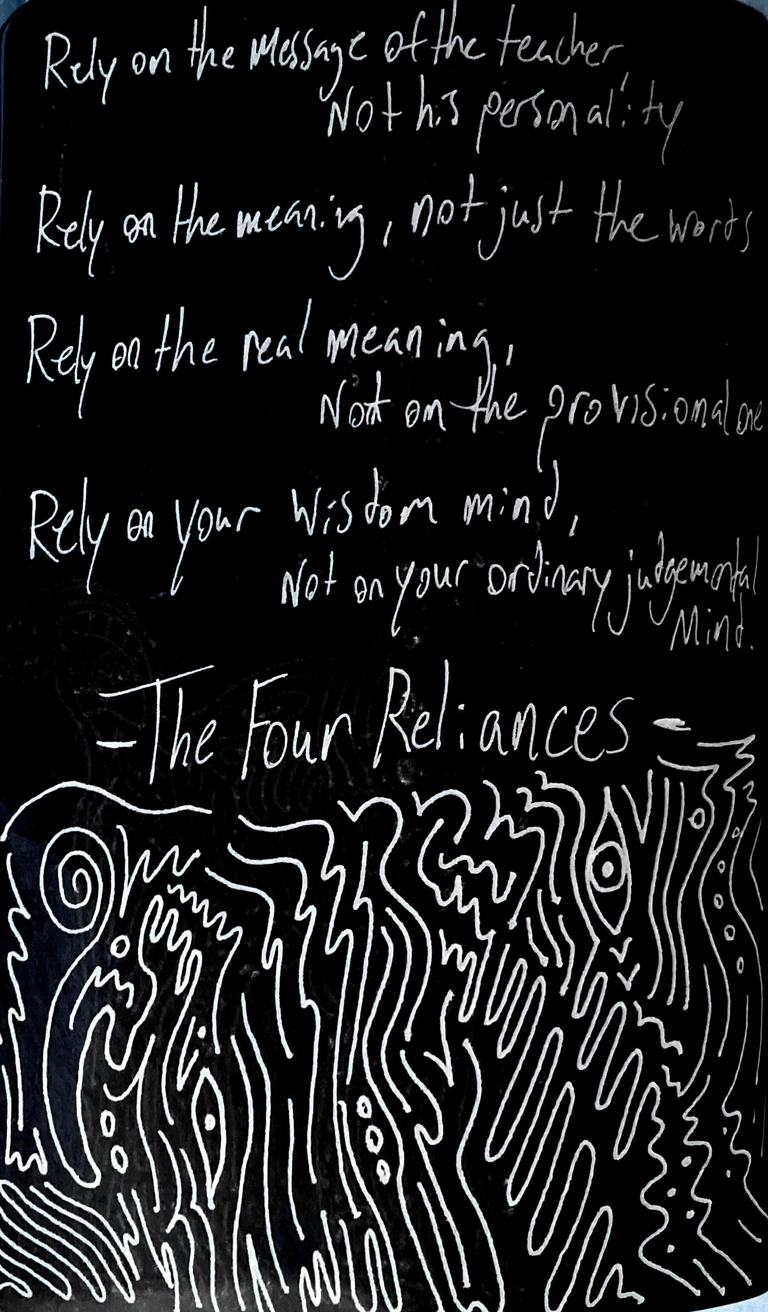 Rely on the message of the teacher,
Not his personality
Rely on the meaning, not just the words
Rely on the real meaning,
Not on the provisional one
Rely on your wisdom mind,
Not on your ordinary judgemental
Mind.
-The Four Reliances-